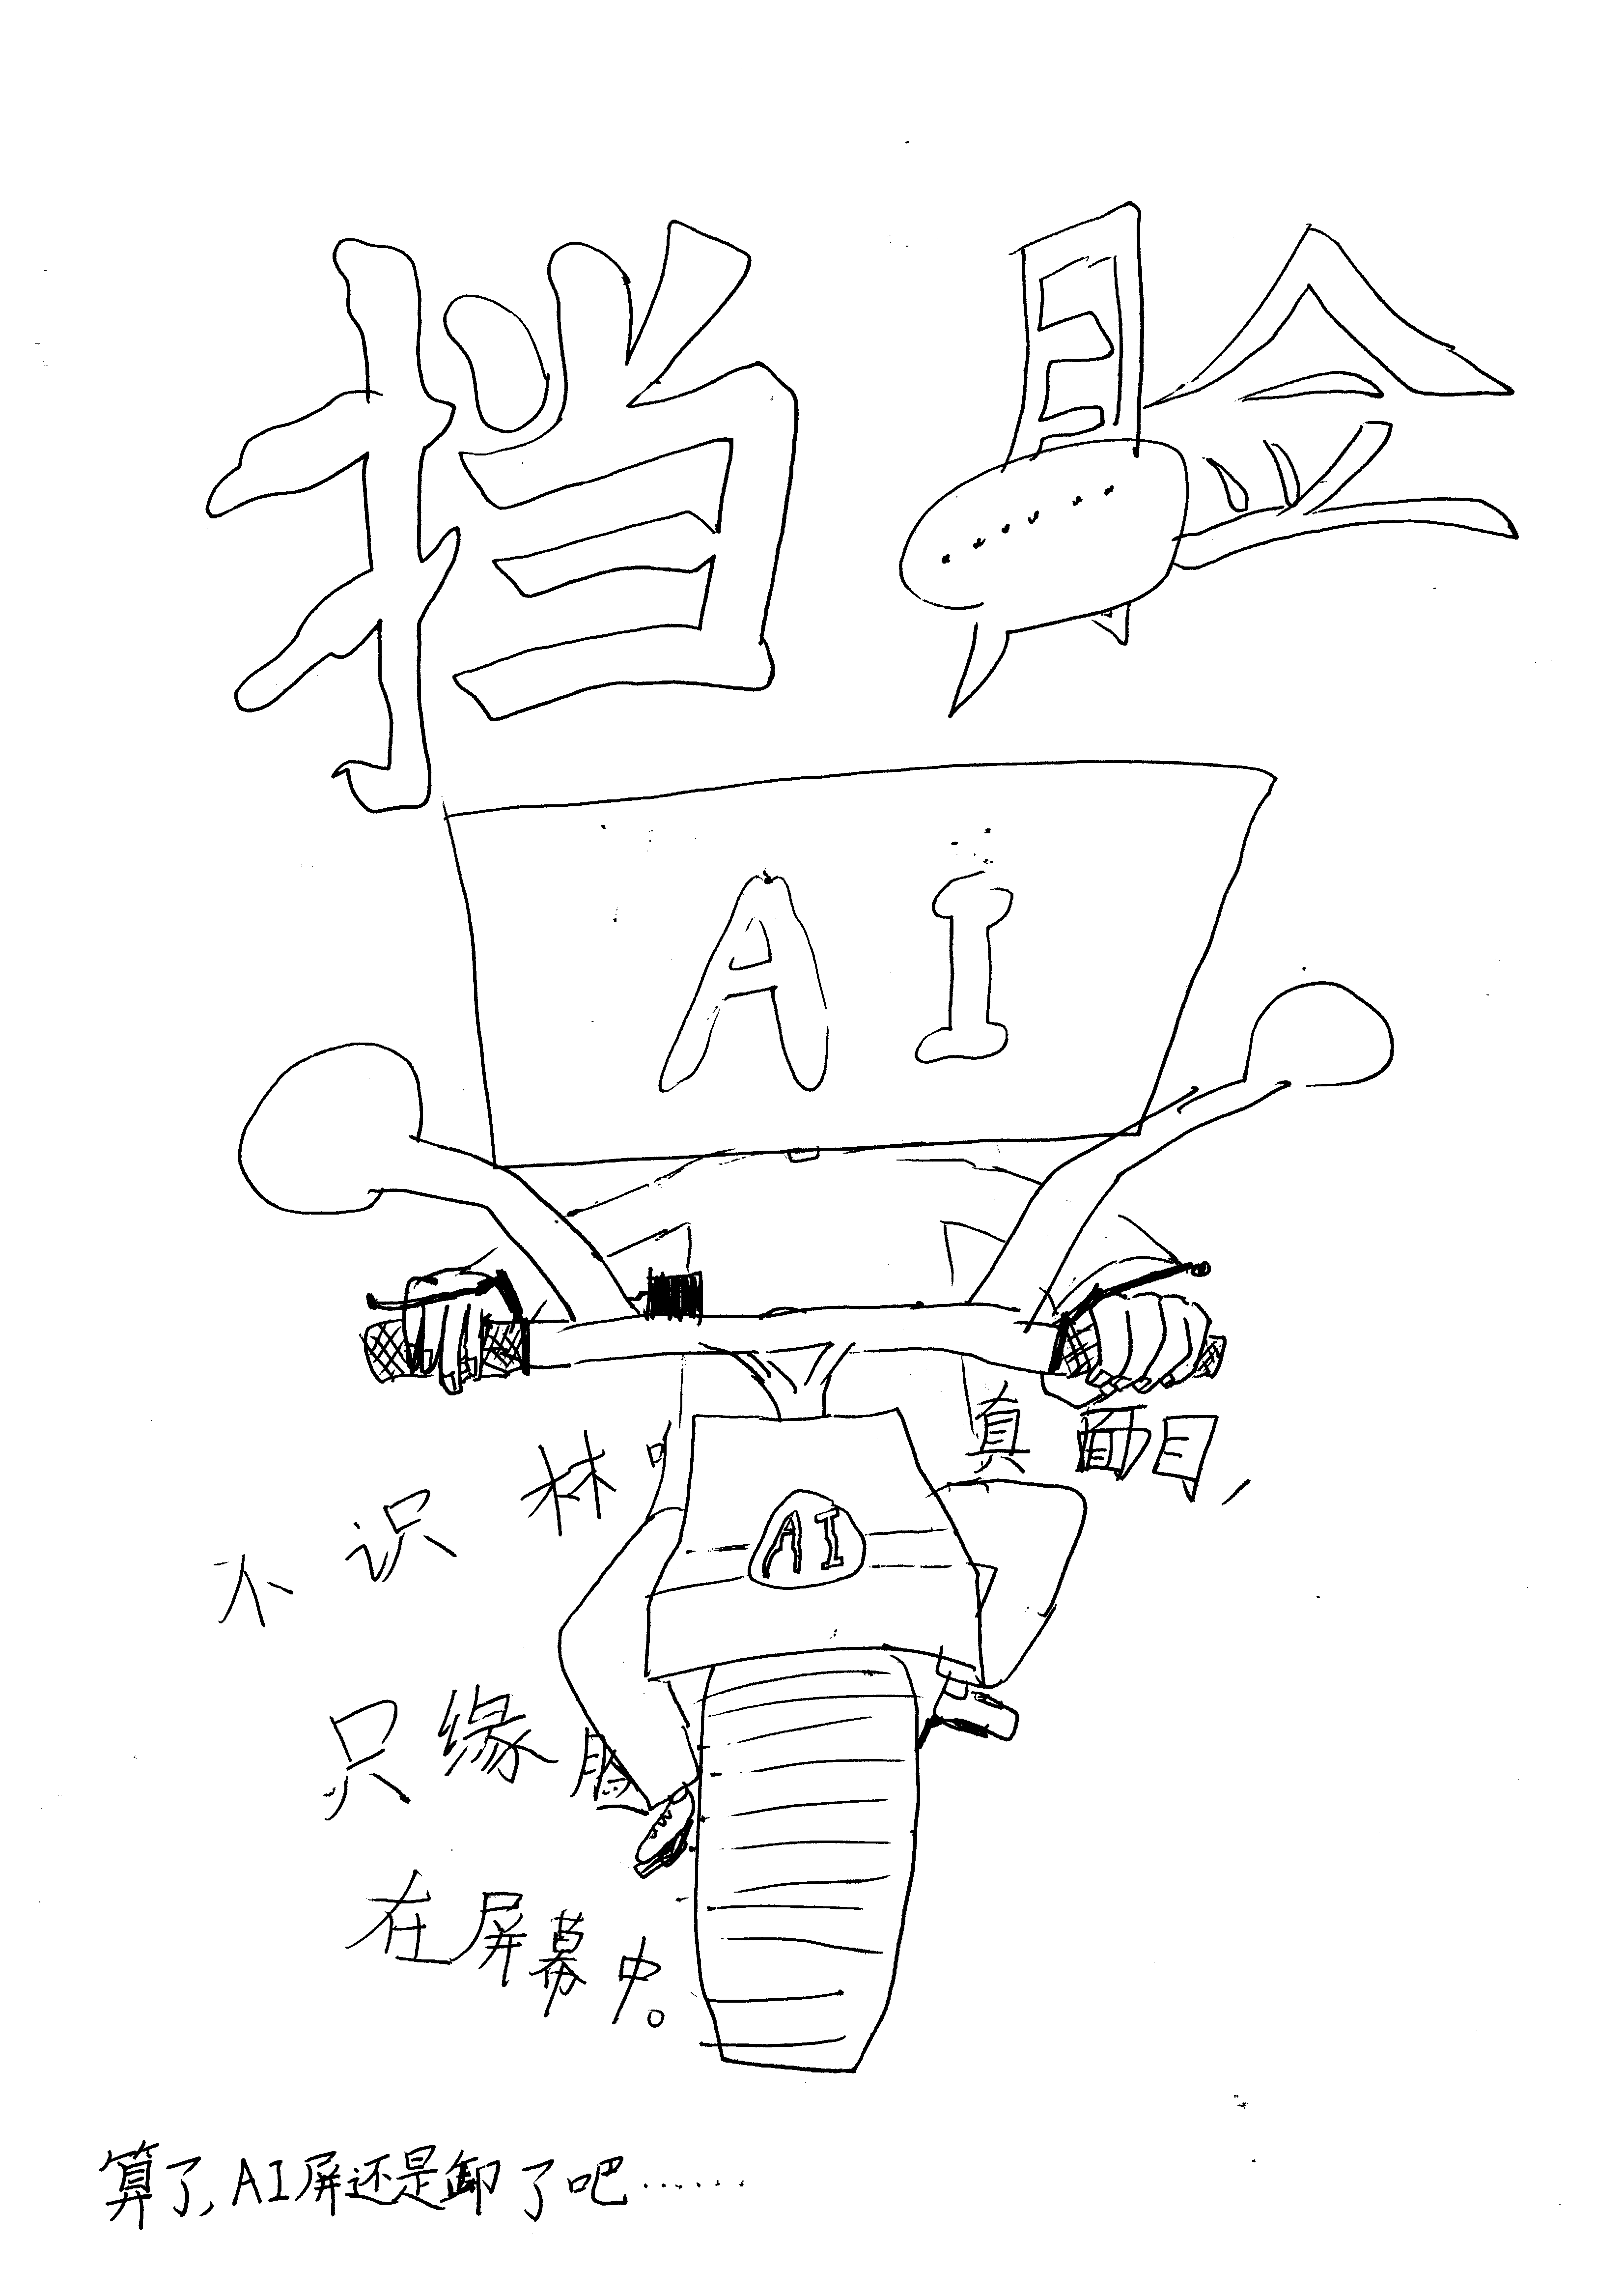 挡脸
......
AI
不识林 真面目,
AI
只缘脸
在屏幕中。
算了,AI屏还是卸了吧……